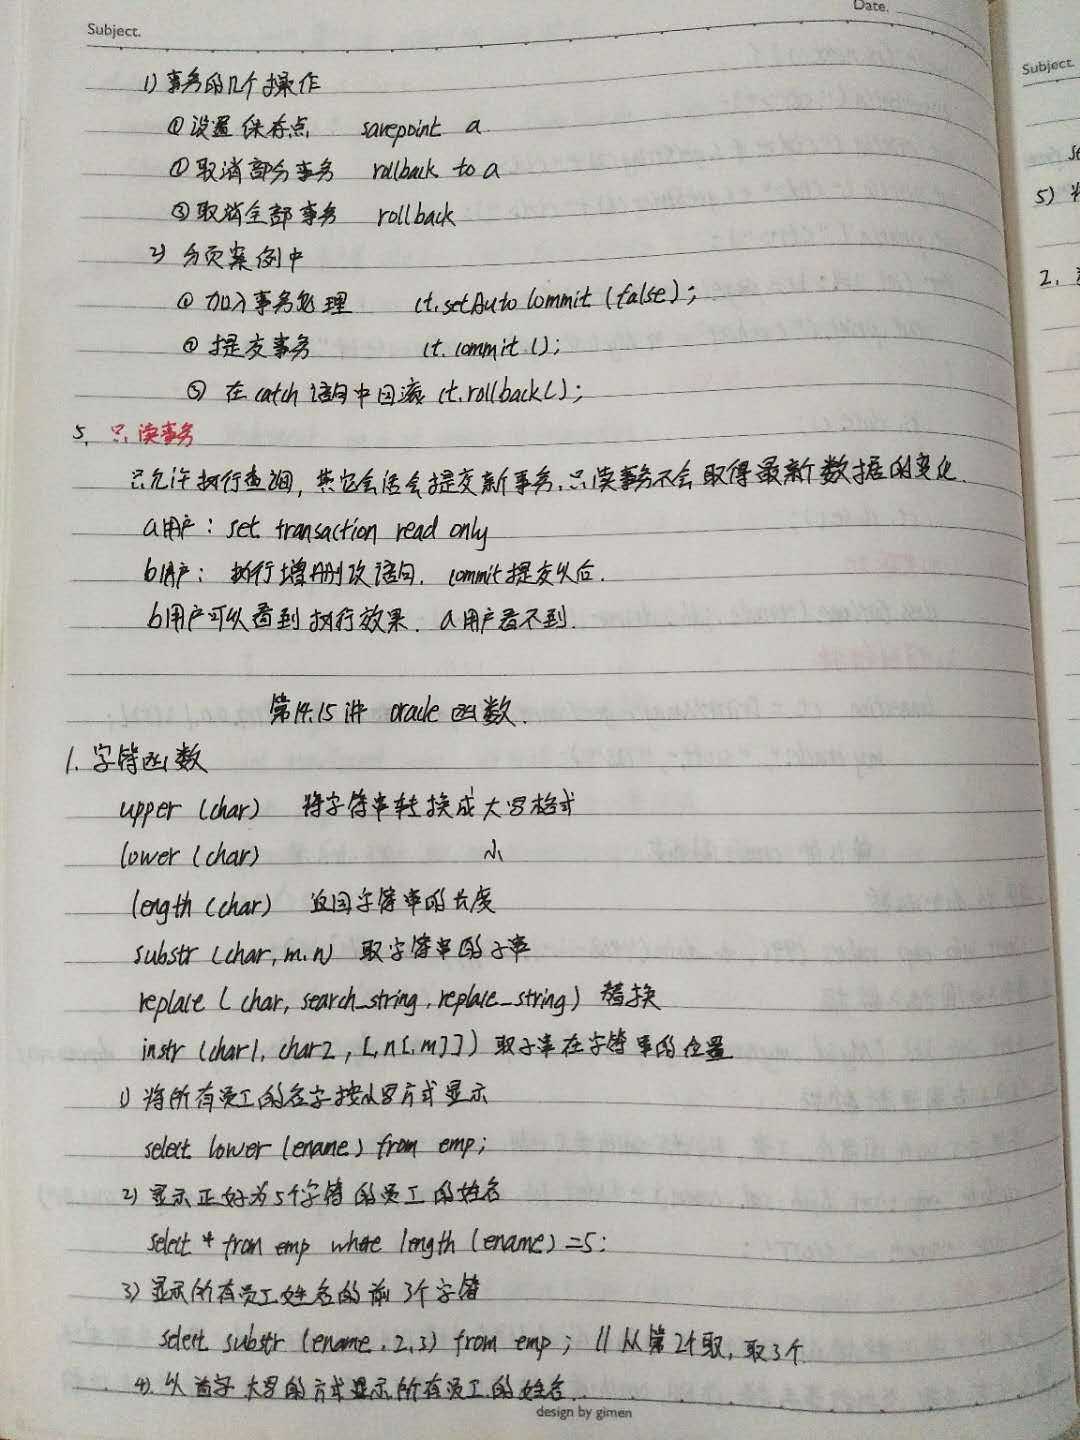 Date.
Subject.
1) 事务的几个操作
① 设置保存点 savepoint a
② 取消部分事务 rollback to a
③ 取消全部事务 rollback
2) 分页案例中
① 加入事务处理 ct.setAutoCommit(false);
② 提交事务 ct.commit();
③ 在catch语句中回滚 ct.rollback();
5. 只读事务
只允许执行查询，其它会话会提交新事务，只读事务不会取得最新数据的变化.
a用户: set transaction read only
b用户: 执行增删改语句. commit提交以后.
b用户可以看到执行效果. a用户看不到.
第14.15讲 oracle 函数.
1. 字符函数
upper (char) 将字符串转换成大写格式
lower (char) 小
length (char) 返回字符串的长度
substr (char, m, n) 取字符串的子串
replace (char, search_string, replace_string) 替换
instr (char1, char2, [,n[,m]]) 取子串在字符串的位置
1) 将所有员工的名字按小写方式显示
select lower (ename) from emp;
2) 显示正好为5个字符的员工的姓名
select * from emp where length (ename) =5;
3) 显示所有员工姓名的前3个字符
select substr (ename, 2,3) from emp; // 从第2个取, 取3个
4) 以首字大写的方式显示所有员工的姓名
design by gimen
Subject.
se
5)
2.